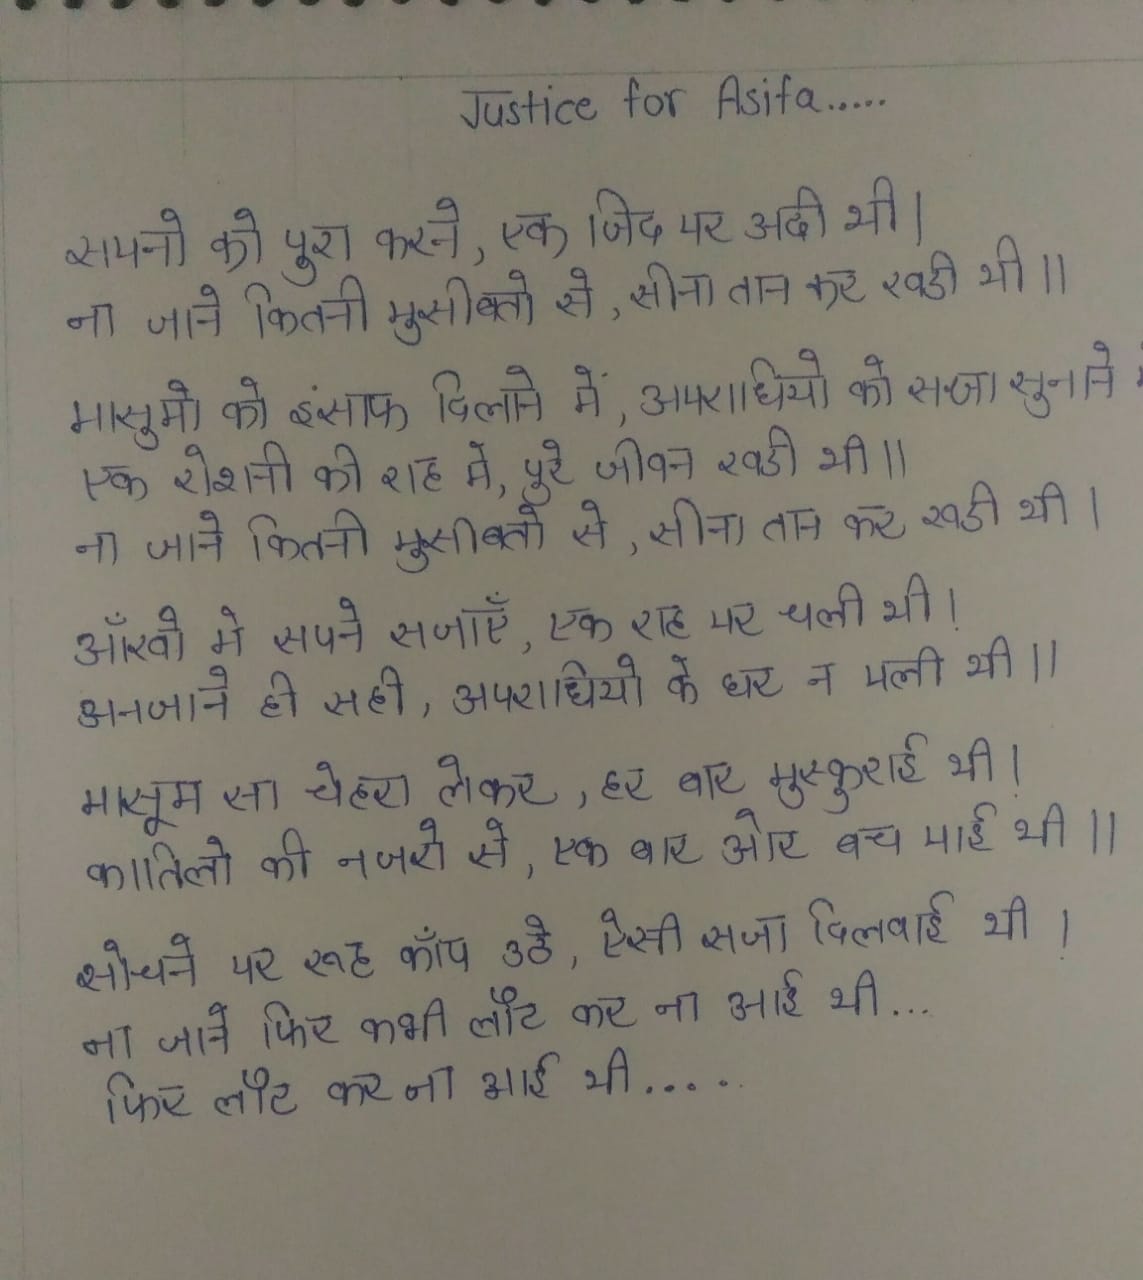 Justice for Asifa.....
सपनो को पुरा करने, एक जिद पर अदी थी।
ना जाने कितनी मुसीबतो से, सीना तान कर खडी थी॥
मासुमो को इंसाफ दिलाने में, अपराधियो को सजा सुनाने मे
एक रोशनी की राह मे, पुरे जीवन खडी थी॥
ना जाने कितनी मुसीबतो से, सीना तान कर खडी थी।
आँखो मे सपने सजाएँ, एक राह पर चली थी।
अनजाने ही सही, अपराधियो के घर न पली थी॥
मासूम सा चेहरा लेकर, हर बार मुस्कुराई थी।
कातिलो की नजरो से, एक बार ओर बच पाई थी॥
सोचने पर रूह काँप उठे, ऐसी सजा दिलवाई थी।
ना जाने फिर कभी लौट कर ना आई थी...
फिर लौट कर ना आई थी.....